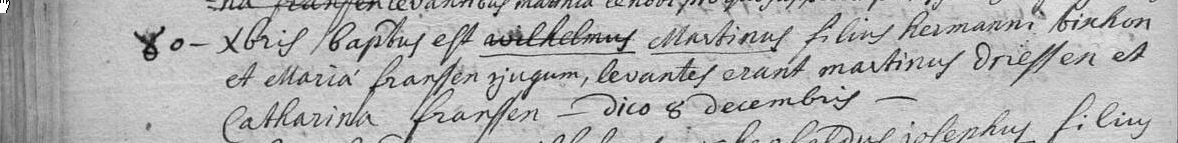 8a - Xbris baptus est wilhelmus Martinus filius hermanni binkon
et Maria franssen zjugum, levantes erant martinus driessen et
Catharina franssen - dico 8 decembris -
josephus filius